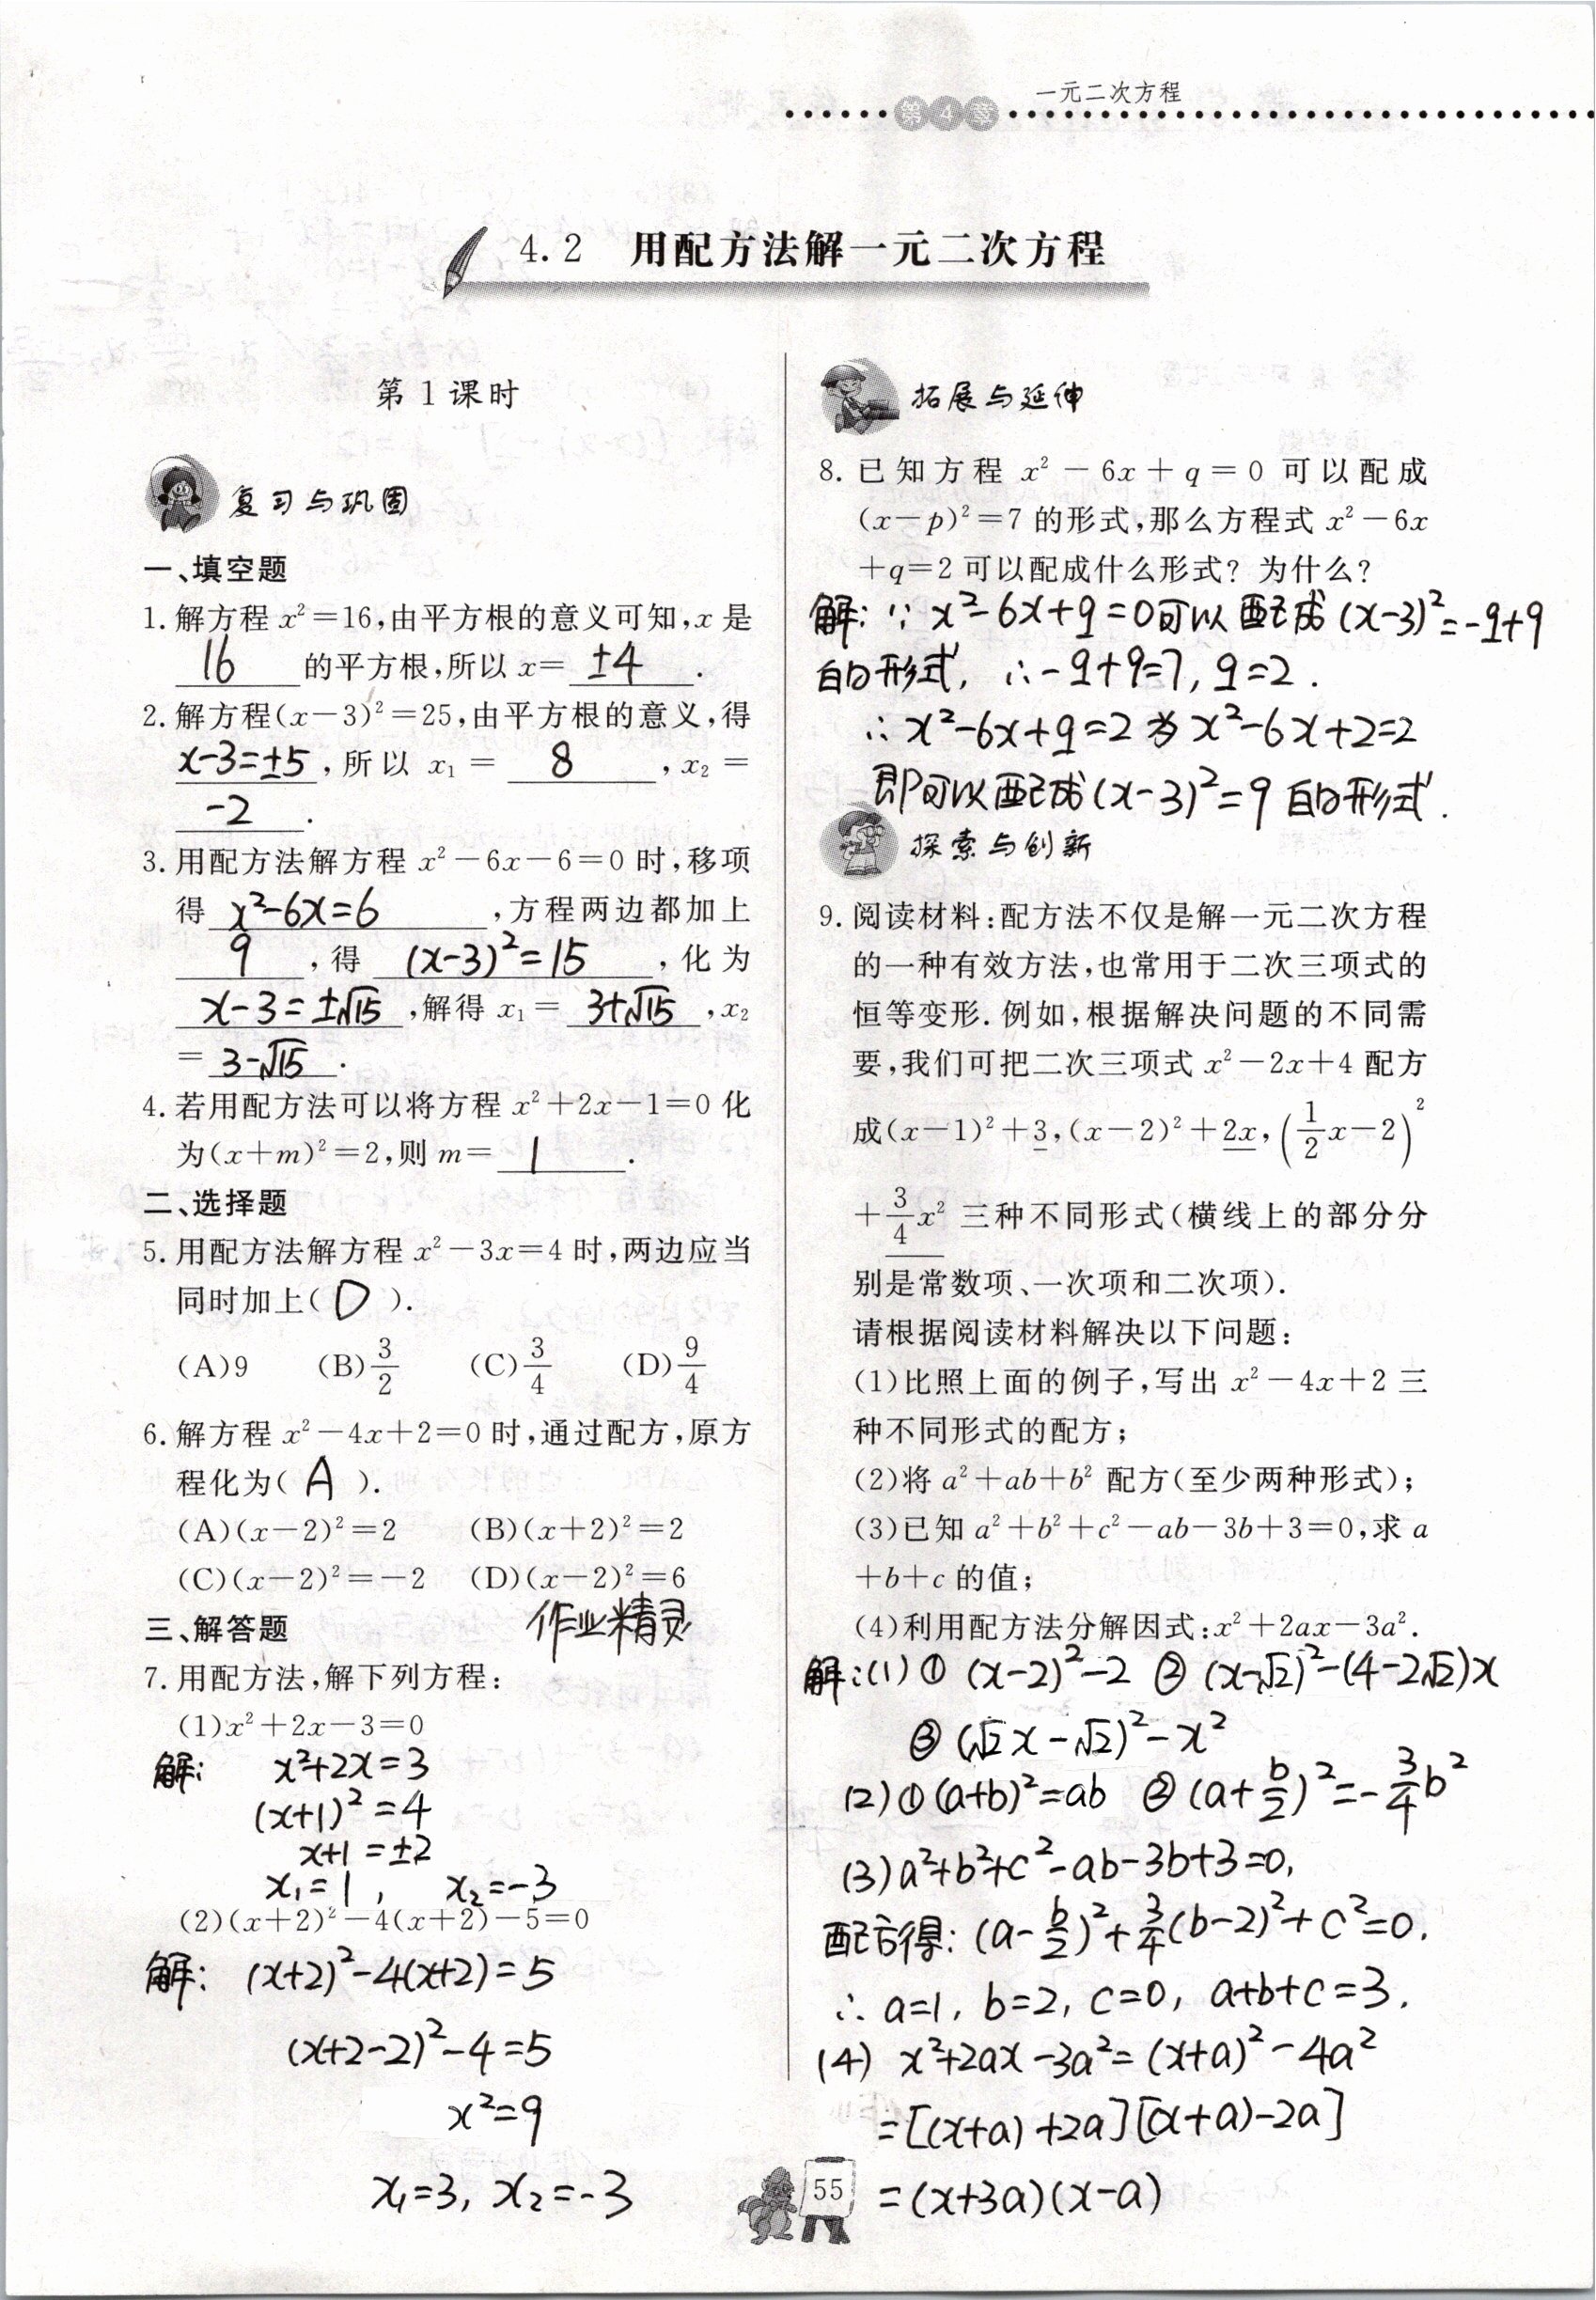 一元二次方程
第4章
4.2 用配方法解一元二次方程
第1课时
复习与巩固
一、填空题
1. 解方程 x²=16,由平方根的意义可知,x 是
16 的平方根,所以 x= ±4 .
2. 解方程(x-3)²=25,由平方根的意义,得
x-3=±5 ,所以 x₁ = 8 ,x₂ =
-2 .
3. 用配方法解方程 x²-6x-6=0 时,移项
得 x²-6x=6 ,方程两边都加上
9 ,得 (x-3)²=15 ,化为
x-3=±√15 ,解得 x₁ = 3+√15 ,x₂
= 3-√15 .
4. 若用配方法可以将方程 x²+2x-1=0 化
为(x+m)²=2,则 m= 1 .
二、选择题
5. 用配方法解方程 x²-3x=4 时,两边应当
同时加上( D ).
(A)9 (B)3/2 (C)3/4 (D)9/4
6. 解方程 x²-4x+2=0 时,通过配方,原方
程化为( A ).
(A)(x-2)²=2 (B)(x+2)²=2
(C)(x-2)²=-2 (D)(x-2)²=6
作业精灵
三、解答题
7. 用配方法,解下列方程:
(1)x²+2x-3=0
解: x²+2x=3
(x+1)²=4
x+1=±2
x₁=1, x₂=-3
(2)(x+2)²-4(x+2)-5=0
解: (x+2)²-4(x+2)=5
(x+2-2)²-4=5
x²=9
x₁=3, x₂=-3
拓展与延伸
8. 已知方程 x²-6x+q=0 可以配成
(x-p)²=7 的形式,那么方程式 x²-6x
+q=2 可以配成什么形式? 为什么?
解: ∵ x²-6x+q=0可以配成(x-3)²=-q+9
的形式, ∴-q+9=7, q=2.
∴x²-6x+q=2为x²-6x+2=2
即可以配成(x-3)²=9的形式.
探索与创新
9. 阅读材料:配方法不仅是解一元二次方程
的一种有效方法,也常用于二次三项式的
恒等变形. 例如,根据解决问题的不同需
要,我们可把二次三项式 x²-2x+4 配方
成(x-1)²+3,(x-2)²+2x,(1/2x-2)²
+3/4x² 三种不同形式(横线上的部分分
别是常数项、一次项和二次项).
请根据阅读材料解决以下问题:
(1)比照上面的例子,写出 x²-4x+2 三
种不同形式的配方;
(2)将 a²+ab+b² 配方(至少两种形式);
(3)已知 a²+b²+c²-ab-3b+3=0,求 a
+b+c 的值;
(4)利用配方法分解因式:x²+2ax-3a².
解:(1)① (x-2)²-2 ② (x-√2)²-(4-2√2)x
③ (√2x-√2)²-x²
(2)①(a+b)²=ab ②(a+b/2)²=-3/4b²
(3)a²+b²+c²-ab-3b+3=0,
配方得: (a-b/2)²+3/4(b-2)²+c²=0.
∴ a=1, b=2, c=0, a+b+c=3.
(4) x²+2ax-3a²=(x+a)²-4a²
=[(x+a)+2a][(x+a)-2a]
=(x+3a)(x-a)
55